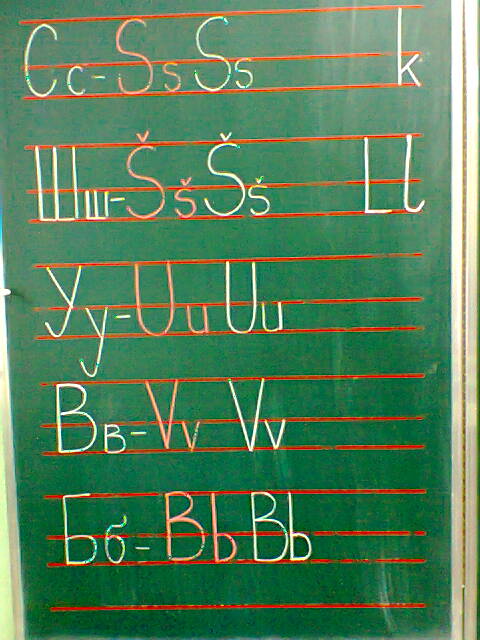 Сс-Ss Ss k
Шш-Šš Šš Ll
Уу-Uu Uu
Вв-Vv Vv
Бб-Bb Bb